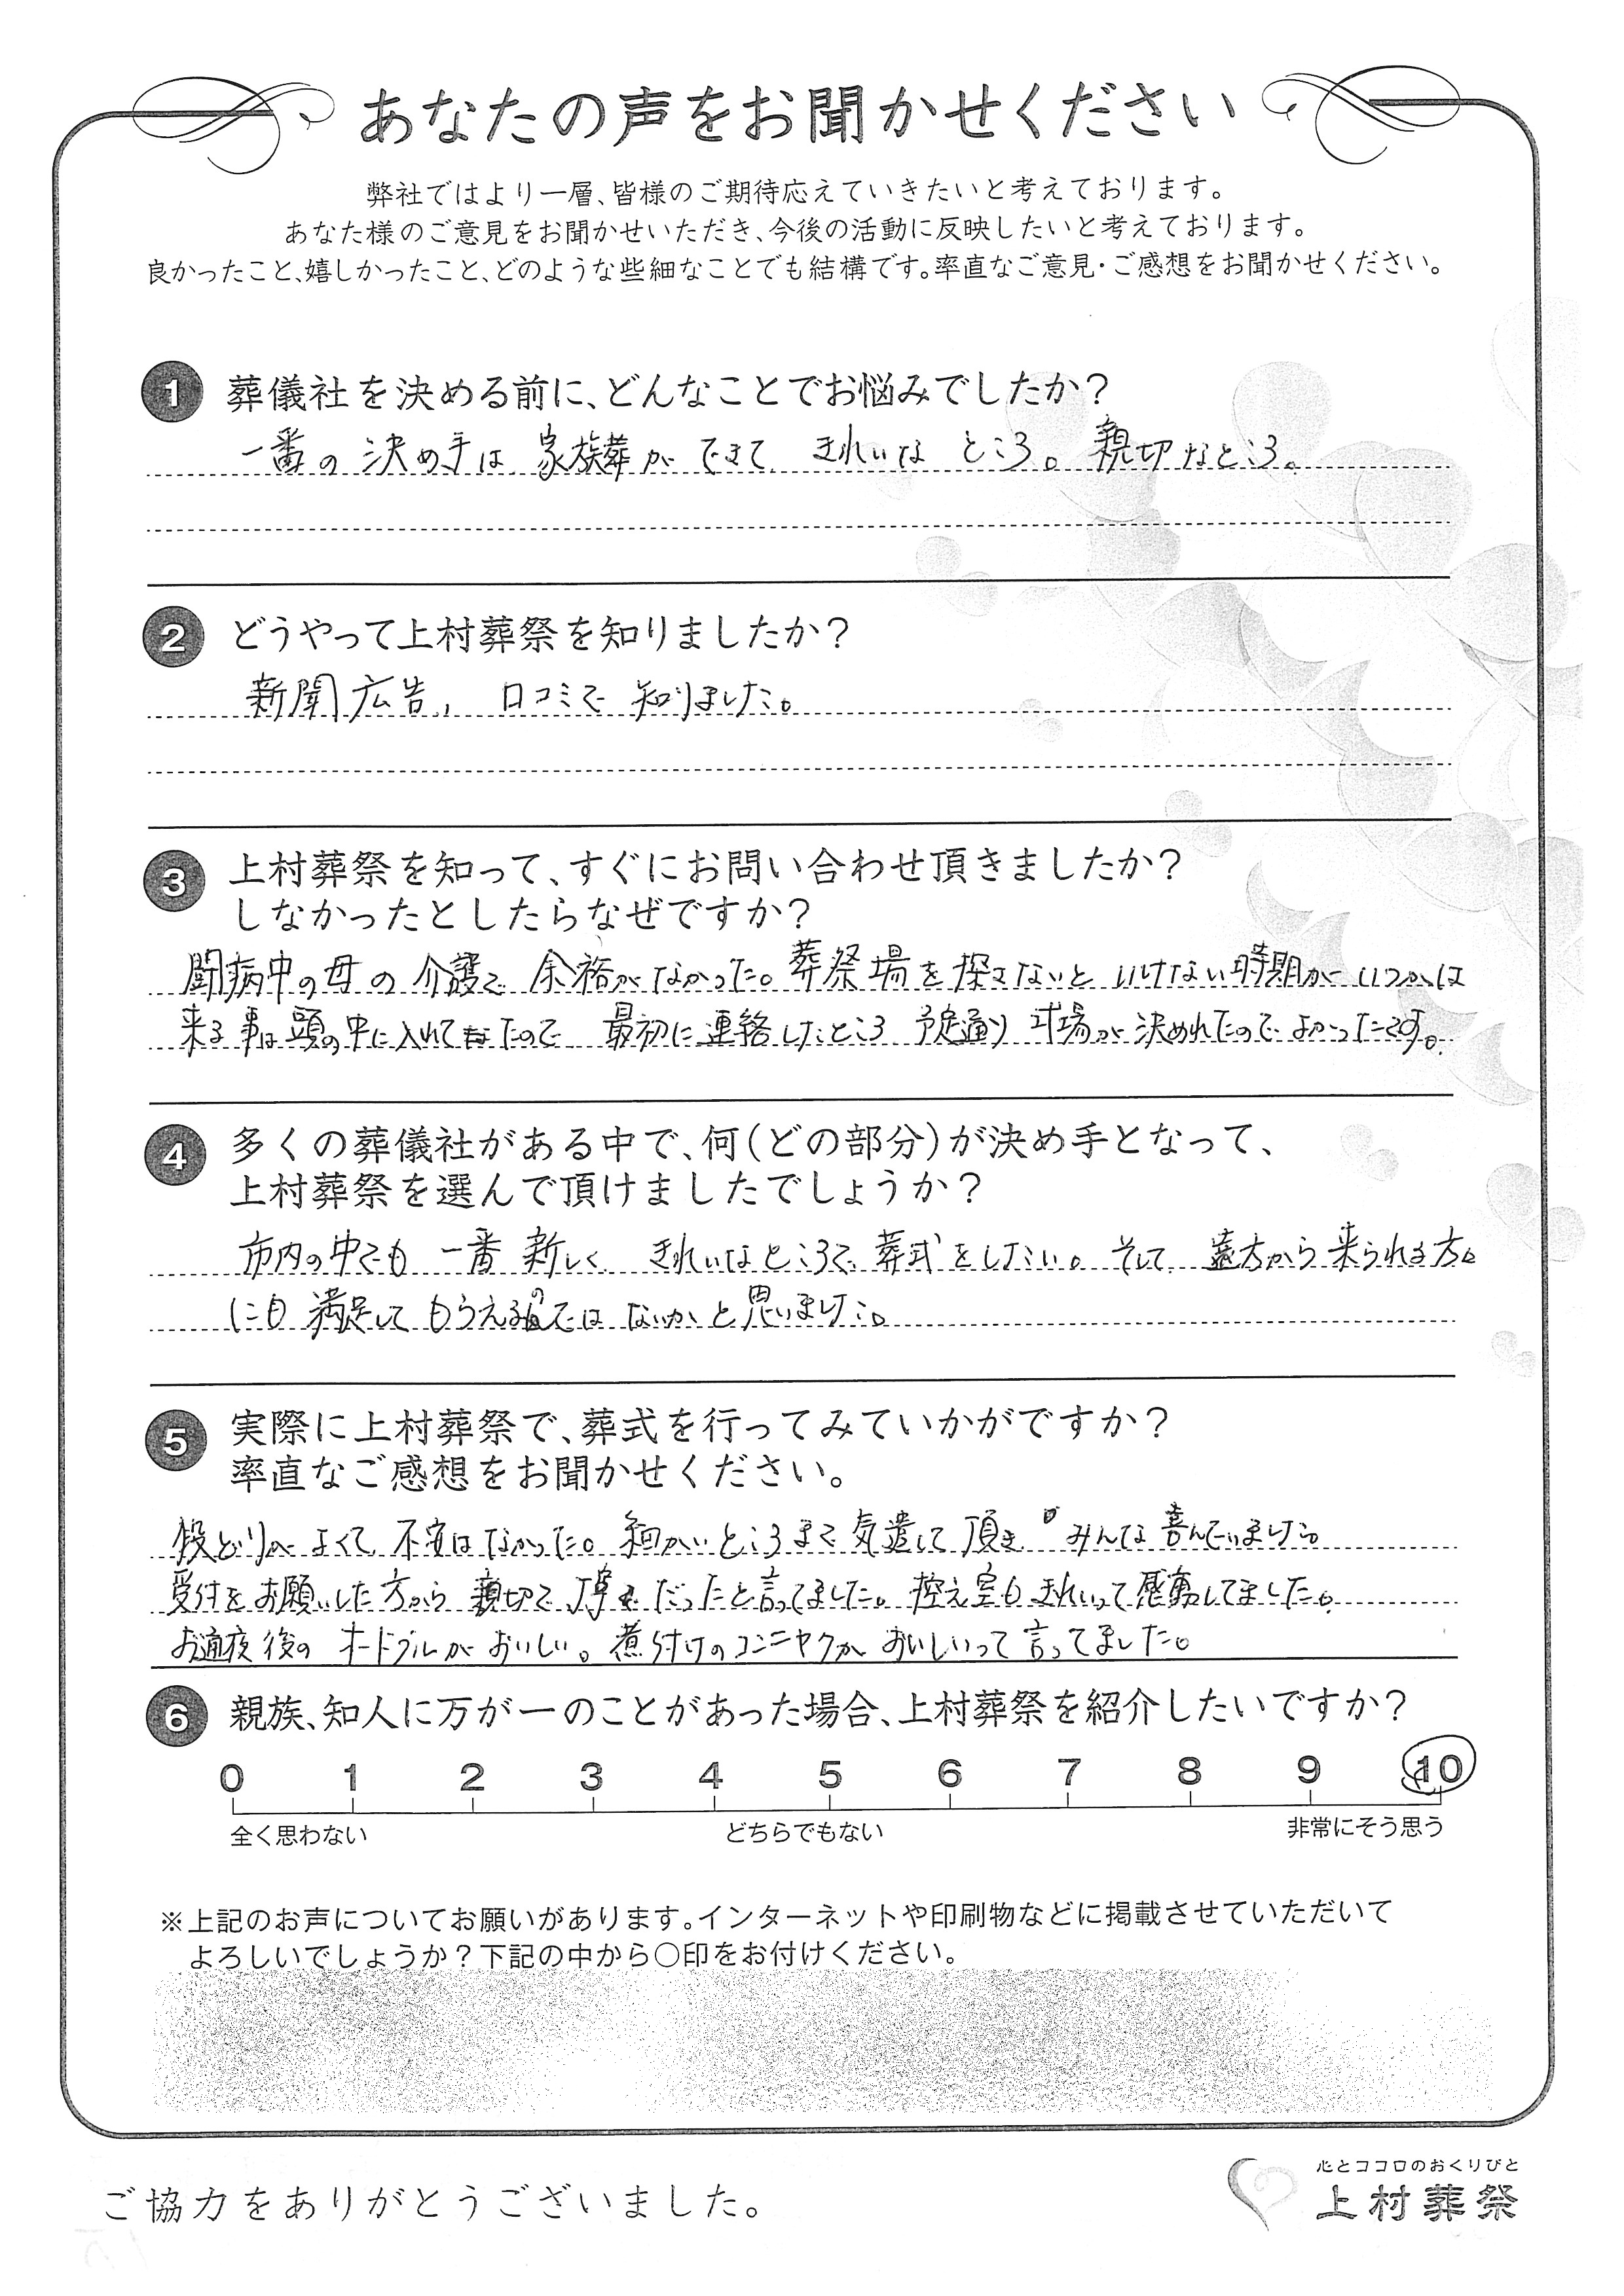 あなたの声をお聞かせください
弊社ではより一層、皆様のご期待応えていきたいと考えております。
あなた様のご意見をお聞かせいただき、今後の活動に反映したいと考えております。
良かったこと、嬉しかったこと、どのような些細なことでも結構です。率直なご意見・ご感想をお聞かせください。
1 葬儀社を決める前に、どんなことでお悩みでしたか？
一番の決め手は家族葬ができて きれいなところ。親切なところ。
2 どうやって上村葬祭を知りましたか？
新聞広告、口コミで知りました。
3 上村葬祭を知って、すぐにお問い合わせ頂きましたか？
しなかったとしたらなぜですか？
闘病中の母の介護で余裕がなかった。葬祭場を探さないといけない時期がいつかは
来る事は頭の中に入れてたので 最初に連絡したところ 予定通り式場が決めれたのでよかったです。
4 多くの葬儀社がある中で、何（どの部分）が決め手となって、
上村葬祭を選んで頂けましたでしょうか？
市内の中でも一番新しく きれいなところで葬式をしたい。そして 遠方から来られる方に
にも満足してもらえるのではないかと思いました。
5 実際に上村葬祭で、葬式を行ってみていかがですか？
率直なご感想をお聞かせください。
段どりがよくて不安はなかった。細かいところまで気遣して頂き みんな喜んでいました。
受付をお願いした方から親切で丁寧だったと言ってました。控え室もきれいって感動してました。
お通夜後のオードブルがおいしい。煮付けのコンニャクがおいしいって言ってました。
6 親族、知人に万が一のことがあった場合、上村葬祭を紹介したいですか？
0 1 2 3 4 5 6 7 8 9 10
全く思わない どちらでもない 非常にそう思う
※上記のお声についてお願いがあります。インターネットや印刷物などに掲載させていただいて
よろしいでしょうか？下記の中から○印をお付けください。
ご協力をありがとうございました。
心とココロのおくりびと
上村葬祭